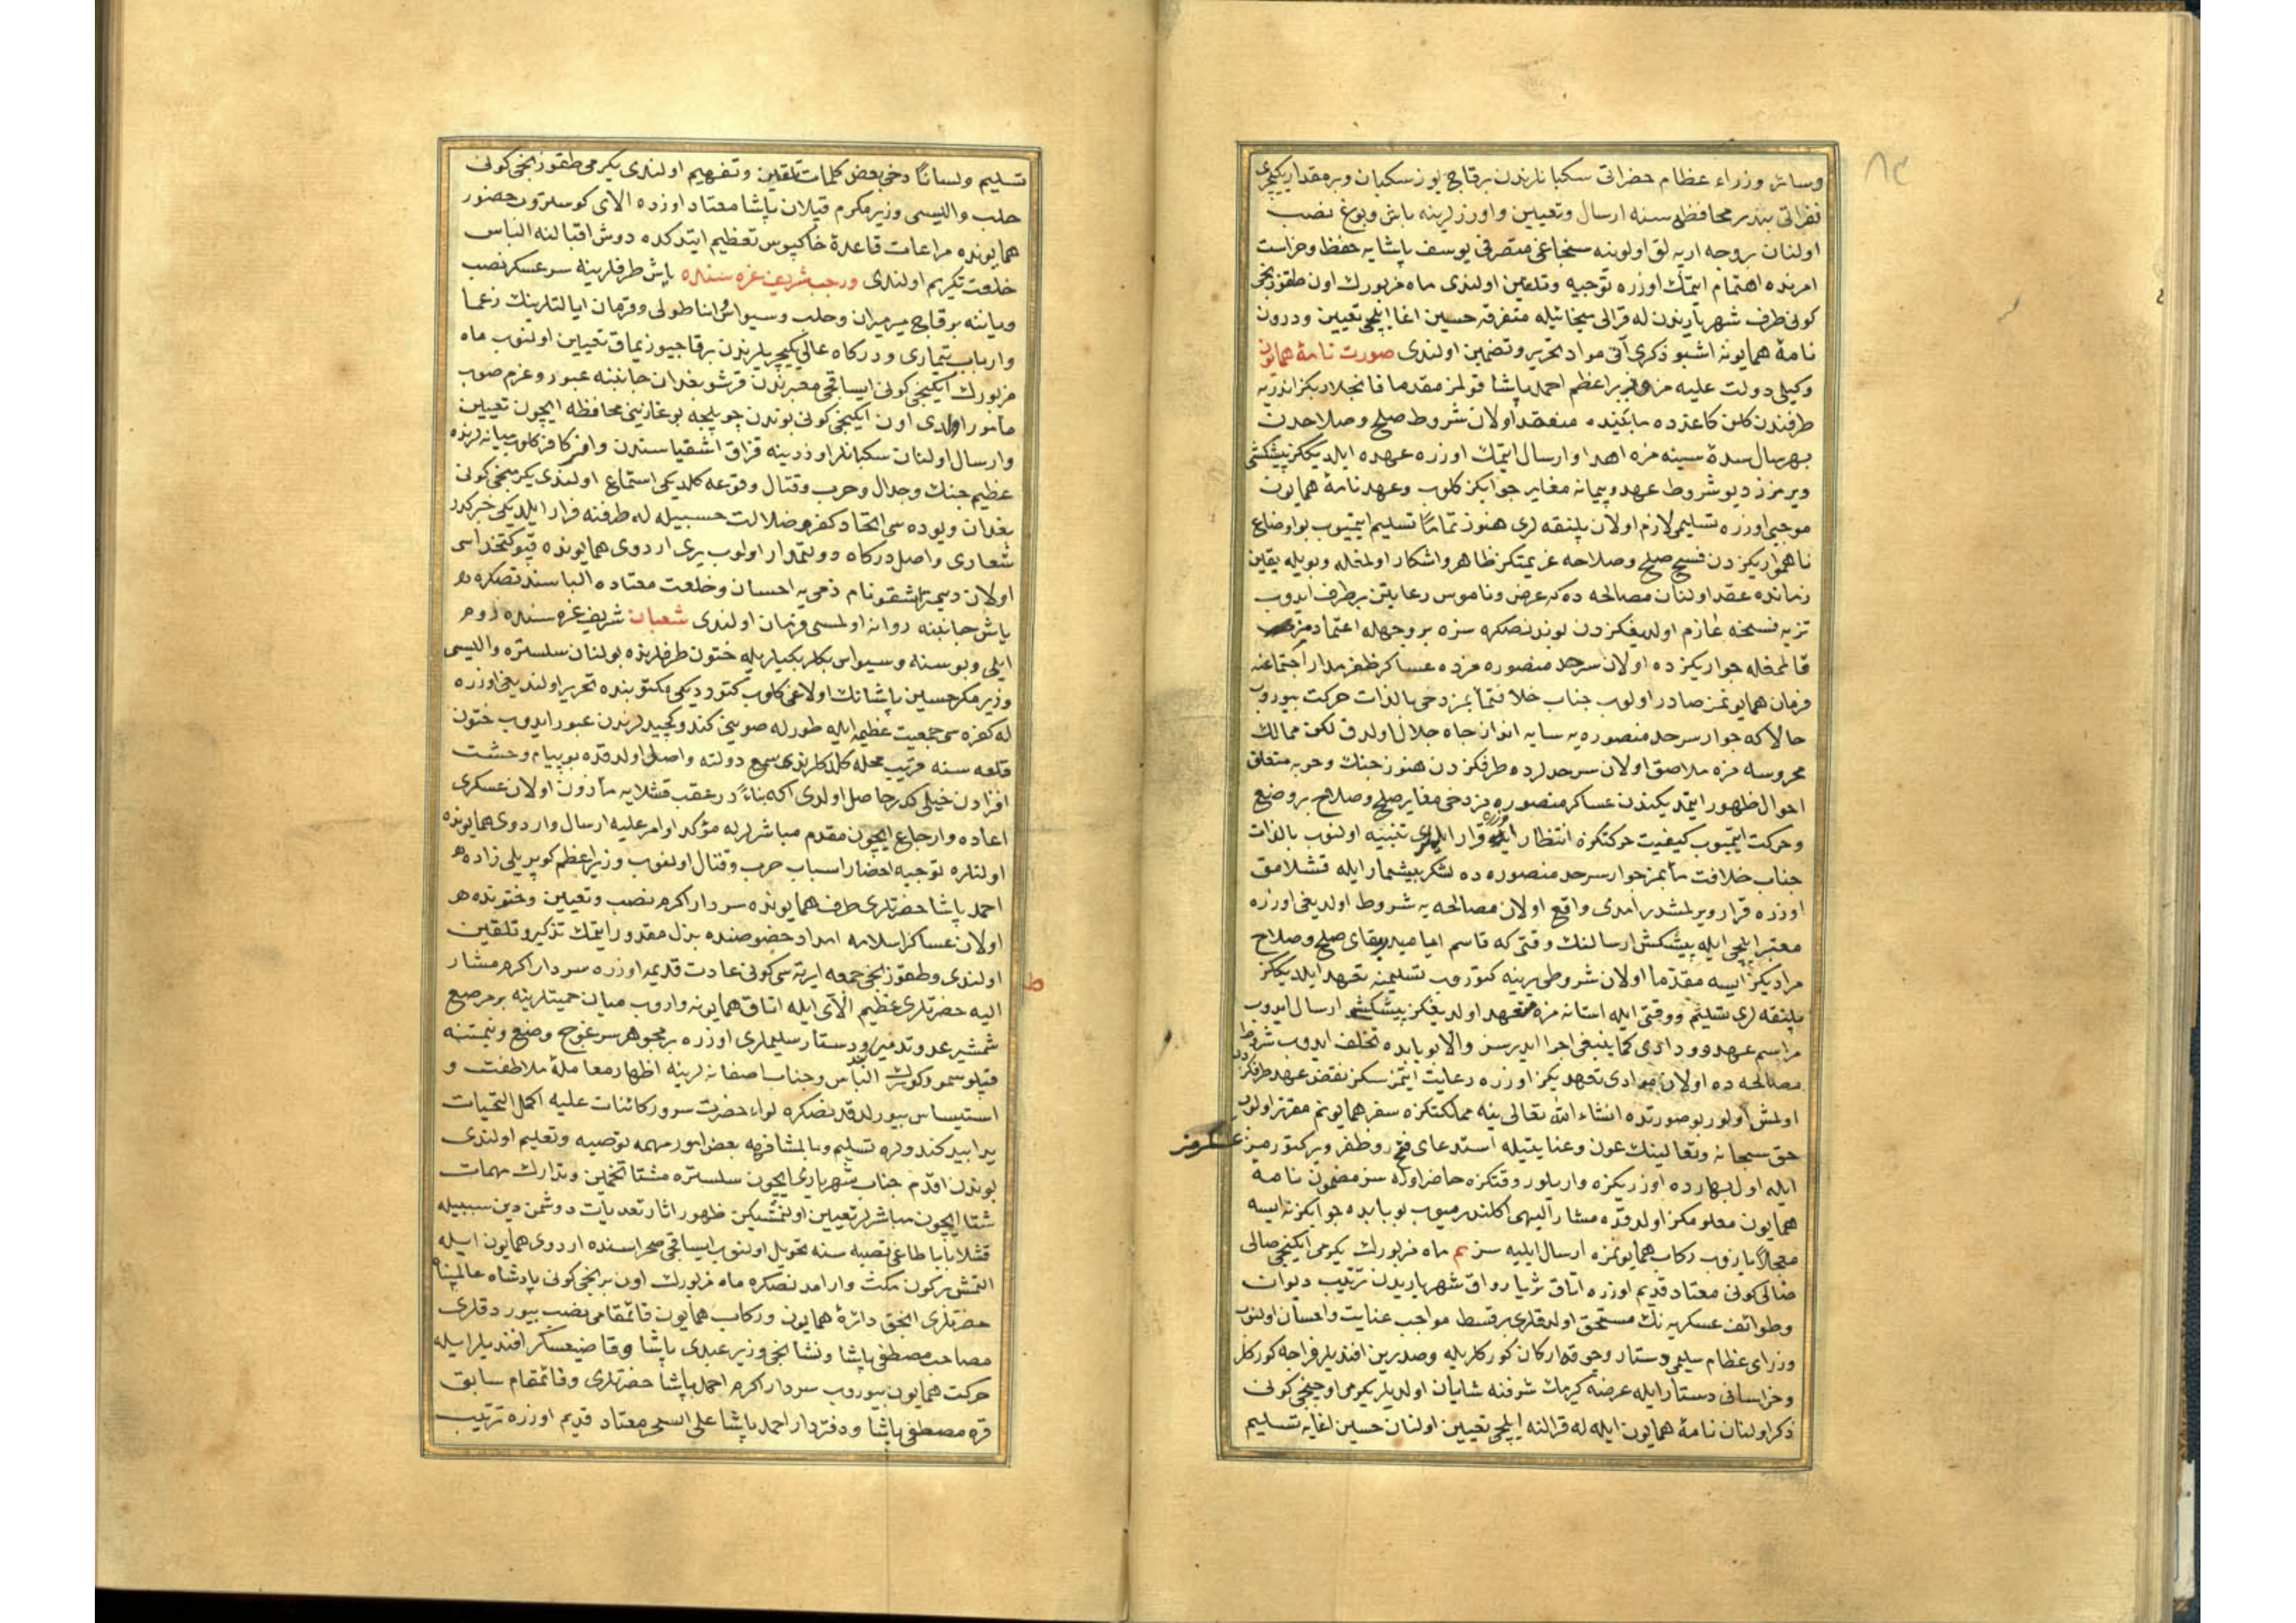 وسائر وزراء عظام حضراتی سکبانلرندن برقاچ یوز سکبان وبرمقدار یکیچری
نفراتی بندر محافظه سنه ارسال وتعیین واوزرلرینه باش وبوغ نصب
اولنان بروجه ارپه لق اولوینه سنجاغی متصرفی یوسف پاشایه حفظ وحراست
امرنده اهتمام ایتمك اوزره توجیه وتلقین اولندی ماه مزبورك اون طقوزنجی
کونی طرف شهریاریدن له قرالی متفرقه حسین اغا ایلچی تعیین ودرون
نامۀ همایونه اشبو ذکری آتی مواد تحریر وتضمین اولندی صورت نامۀ همایون
وکیلی دولت علیه مز وزیر اعظم احمد پاشا قولمز مقدما
طرفندن کلن کاغدده مابینده منعقد اولان شروط صلح وصلاحدن
بهرسال سدۀ سنیه مزه اهدا وارسال ایتمك اوزره عهده ایلدیككز پیشکشی
ویرمزز دیو شروط عهد وپیمانه مغایر جوابکز کلوب وعهدنامۀ همایون
موجبی اوزره تسلیمی لازم اولان پلنقه لری هنوز تماماً تسلیم ایتمیوب بو اوضاع
ناهمواریکزدن فسخ صلح وصلاحه عزیمتکز ظاهر واشکار اولمغله وبویله یقین
زمانده عقد اولنان مصالحه ده که عرض وناموس رعایتن برطرف ایدوب
فسخنه عازم اولدیغکزدن بوندنصکره سزه بروجهله اعتمادمز
قالمغله جواریکزده اولان سرحد منصوره مزده عساکر ظفرمدار اجتماعنه
فرمان همایونمز صادر اولوب جناب خلافتمآبمز دخی بالذات حرکت بیوروب
حالا که جوار سرحد منصوره یه سایه انداز جاه جلال اولدق لکن ممالك
محروسه مزه ملاصق اولان سرحدلرده طرفکزدن هنوز جنك وحربه متعلق
احوال ظهور ایتمدیكندن عساکر منصوره مز دخی مغایر صلح وصلاح بر وضع
وحرکت ایتمیوب کیفیت حرکتکزه انتظار اوزره تنبیه اولنوب بالذات
جناب خلافت مآبمز جوار سرحد منصوره ده لشکر بیشمار ایله قشلامق
اوزره قرار ویرلمشدر امدی واقع اولان مصالحه یه شروط اولدیغی اوزره
معتبر ایلچی ایله پیشکش ارسالنك وقتی که قاسم ایامیدر بقای صلح وصلاح
مرادیکز ایسه مقدما اولان شروطی یرینه کتوروب تسلیمنه تعهد ایلدیككز
پلنقه لری تسلیم ووقتی ایله استانه مزه متعهد اولدیغکز پیشکشی ارسال ایدوب
مراسم عهد ووداد کماینبغی اجرا ایدرسز والا بوبابده تخلف ایدوب شروط
مصالحه ده اولان موادی تعهدیکز اوزره رعایت ایتمزسکز نقض عهد طرفکزدن
اولمش اولور بو صورتده انشاء الله تعالی ینه مملکتکزه سفر همایونم مقرر اولوب
حق سبحانه وتعالینك عون وعنایتیله استدعای فتح وظفر
عسکرمز
ایله اول بهارده اوزریکزه واریلور وقتکزه حاضر اوله سز مضمون نامۀ
همایون معلومکز اولدقده مشار الیهی اکلندرمیوب بوبابده جوابکز نه ایسه
معجلاً یازوب رکاب همایونمزه ارسال ایلیه سز ماه مزبورك یکرمی ایکنجی صالی
کونی معتاد قدیم اوزره اتاق ثریا رواق شهریاریدن ترتیب دیوان
وطوائف عسکریه نك مستحق اولدقلری بر قسط مواجب عنایت واحسان اولنوب
وزرای عظام سلیمی دستار وچوقه ارکان کورکلریله وصدرین افندیلر فراجه کورکلر
وخراسانی دستار ایله عرضه کیرمك شرفنه شایان اولدیلر یکرمی اوچنجی کونی
ذکر اولنان نامۀ همایون ایله له قرالنه ایلچی تعیین اولنان حسین اغایه تسلیم
تسلیم ولساناً دخی بعض کلمات تلقین وتفهیم اولندی یکرمی طقوزنجی کونی
حلب والیسی وزیر مکرم قپلان پاشا معتاد اوزره الای کوستروب حضور
همایونده مراعات قاعدۀ خاکبوس تعظیم ایتدکده دوش اقبالنه الباس
خلعت تکریم اولندی ورجب شریف غره سنده باش طرفلرینه سرعسکر نصب
ویاننه برقاچ میرمیران وحلب وسیواس اناطولی وقرمان ایالتلرینك زعما
وارباب تیماری ودرکاه عالی یکیچریلرندن برقاچیوز یماق تعیین اولنوب ماه
مزبورك ایکنجی کونی ایساقجی معبرندن قرشو بغدان جانبنه عبور وعزم صوب
مأمور اولدی اون ایکنجی کونی بوندن چوبلجه بوغازینی محافظه ایچون تعیین
وارسال اولنان سکبانلر اوزرینه قزاق اشقیاسندن وافر کافر کلوب میانه لرنده
عظیم جنك وجدال وحرب وقتال وقوعه کلدیکی استماع اولندی یکرمنجی کونی
بغدان ویوده سی اتحاد کفره ضلالت حسبیله له طرفنه فرار ایلدیکی خبر کدر
شعاری واصل درکاه دولتمدار اولوب یری اردوی همایونده قپوکتخداسی
اولان دیمتراشقو نام ذمی یه احسان وخلعت معتاده الباسندنصکره
یاش جانبنه روانه اولمسی فرمان اولندی شعبان شریف غره سنده روم
ایلی وبوسنه وسیواس بکلربکیلریله ختون طرفلرنده بولنان سلستره والیسی
وزیر مکرم حسین پاشانك اولاغی کلوب کتوردیکی مکتوبنده تحریر اولندیغی اوزره
له کفره سی جمعیت عظیمه ایله طورله صویینی کندو کچیدلرندن عبور ایدوب ختون
قلعه سنه قریب محله کلدکلرینی سمع دولته واصل اولدقده بو پیام وحشت
افزادن خیلی کدر حاصل اولدی اکه بناءً درعقب قشلایه مأذون اولان عسکری
اعاده وارجاع ایچون مقدم مباشرلرله مؤکد اوامر علیه ارسال واردوی همایونده
اولنلره توجیه احضار اسباب حرب وقتال اولنوب وزیر اعظم کوپریلی زاده
احمد پاشا حضرتلری طرف همایونده سردار اکرم نصب وتعیین وختونده
اولان عساکر اسلامه امداد خصوصنده بذل مقدور ایتمك تذکیر وتلقین
اولندی وطقوزنجی جمعه ایرته سی کونی عادت قدیمه اوزره سردار اکرم مشار
ط
الیه حضرتلری عظیم الای ایله اتاق همایونه واروب میان حمیتلرینه بر مرصع
شمشیر عدو تدمیر ودستار سلیملری اوزره بر مجوهر سرغوج وضع ونیمتنه
قپلو سمور کورك الباس وجناب اصفانه لرینه اظهار معاملۀ ملاطفت و
استیناس بیورلدقدنصکره لواء حضرت سرور کائنات علیه اکمل التحیات
ید ابید کندولره تسلیم وبالمشافهه بعض امور مهمه توصیه وتعلیم اولندی
بوندن اقدم جناب شهریاری ایچون سلستره مشتا تخمین وتدارك مهمات
شتا ایچون مباشرلر تعیین اولنمشیکن ظهور اثار تعدیات دوشمن دین سببیله
قشلا باباطاغی قصبه سنه تحویل اولنوب ایساقجی صحراسنده اردوی همایون ایله
التمش بر کون مکث وارامدنصکره ماه مزبورك اون برنجی کونی پادشاه عالمپناه
حضرتلری انجق دائرۀ همایون ورکاب همایون قائمقامی نصب بیوردقلری
مصاحب مصطفی پاشا ونشانجی وزیر عبدی پاشا وقاضیعسکر افندیلر ایله
حرکت همایون بیوروب سردار اکرم احمد پاشا حضرتلری وقائمقام سابق
قره مصطفی پاشا ودفتردار احمد پاشا علی السحر معتاد قدیم اوزره ترتیب